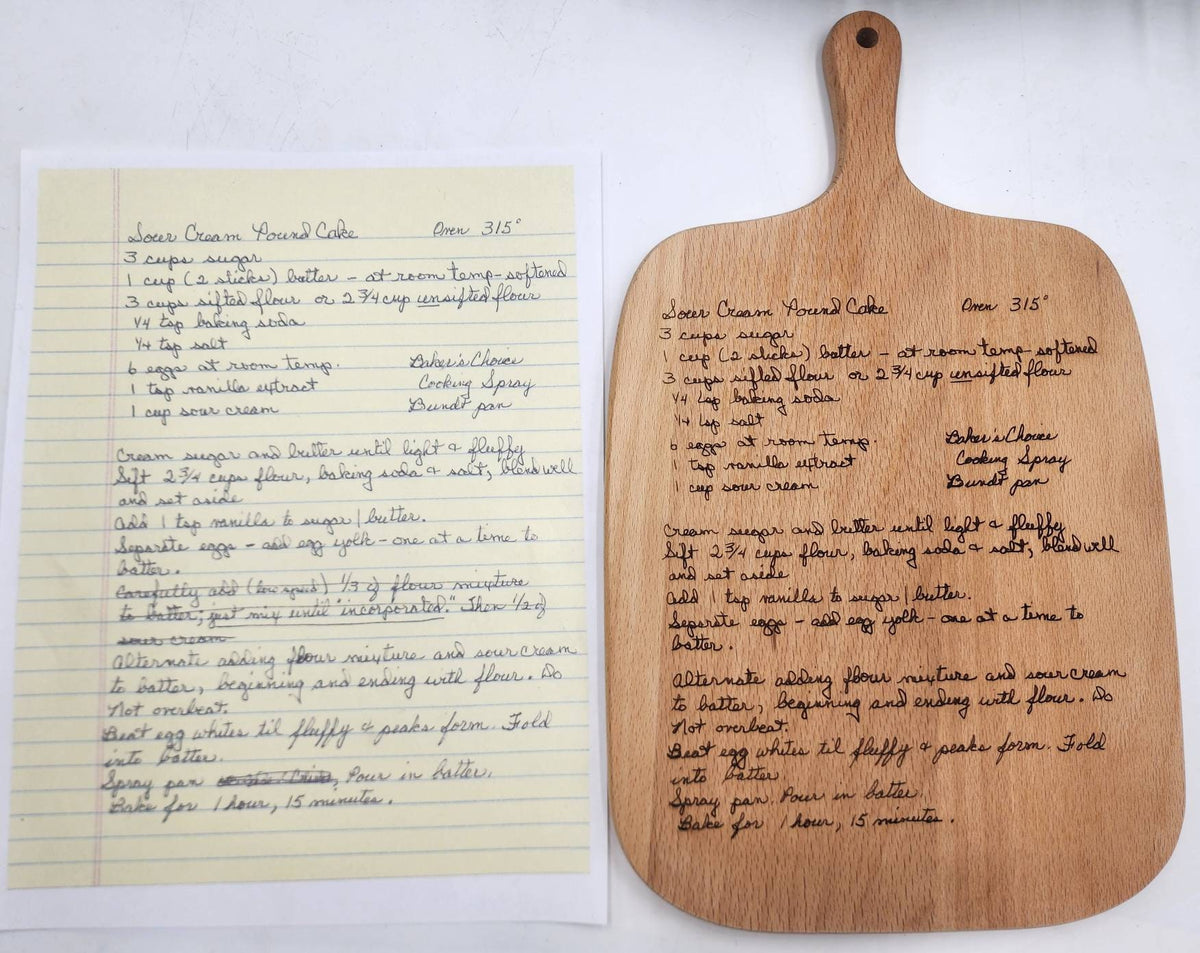 Sour Cream Pound Cake Oven 315°
3 cups sugar
1 cup (2 sticks) batter - at room temp - softened
3 cups sifted flour or 2 3/4 cup unsifted flour
1/4 tsp baking soda
1/4 tsp salt
6 eggs at room temp. Baker's Choice
1 tsp vanilla extract Cooking Spray
1 cup sour cream Bundt pan
Cream sugar and butter until light & fluffy
Sift 2 3/4 cups flour, baking soda & salt, blend well
and set aside
Add 1 tsp vanilla to sugar/butter.
Separate eggs - add egg yolk - one at a time to
batter.
Carefully add (low speed) 1/3 of flour mixture
to batter; just mix until "incorporated." Then 1/2 of
sour cream
Alternate adding flour mixture and sour cream
to batter, beginning and ending with flour. Do
Not overbeat.
Beat egg whites til fluffy & peaks form. Fold
into batter.
Spray pan Pour in batter.
Bake for 1 hour, 15 minutes.
Sour Cream Pound Cake Oven 315°
3 cups sugar
1 cup (2 sticks) batter - at room temp - softened
3 cups sifted flour or 2 3/4 cup unsifted flour
1/4 tsp baking soda
1/4 tsp salt
6 eggs at room temp. Baker's Choice
1 tsp vanilla extract Cooking Spray
1 cup sour cream Bundt pan
Cream sugar and butter until light & fluffy
Sift 2 3/4 cups flour, baking soda & salt, blend well
and set aside
Add 1 tsp vanilla to sugar/butter.
Separate eggs - add egg yolk - one at a time to
batter.
Alternate adding flour mixture and sour cream
to batter, beginning and ending with flour. Do
Not overbeat.
Beat egg whites til fluffy & peaks form. Fold
into batter
Spray pan. Pour in batter.
Bake for 1 hour, 15 minutes.